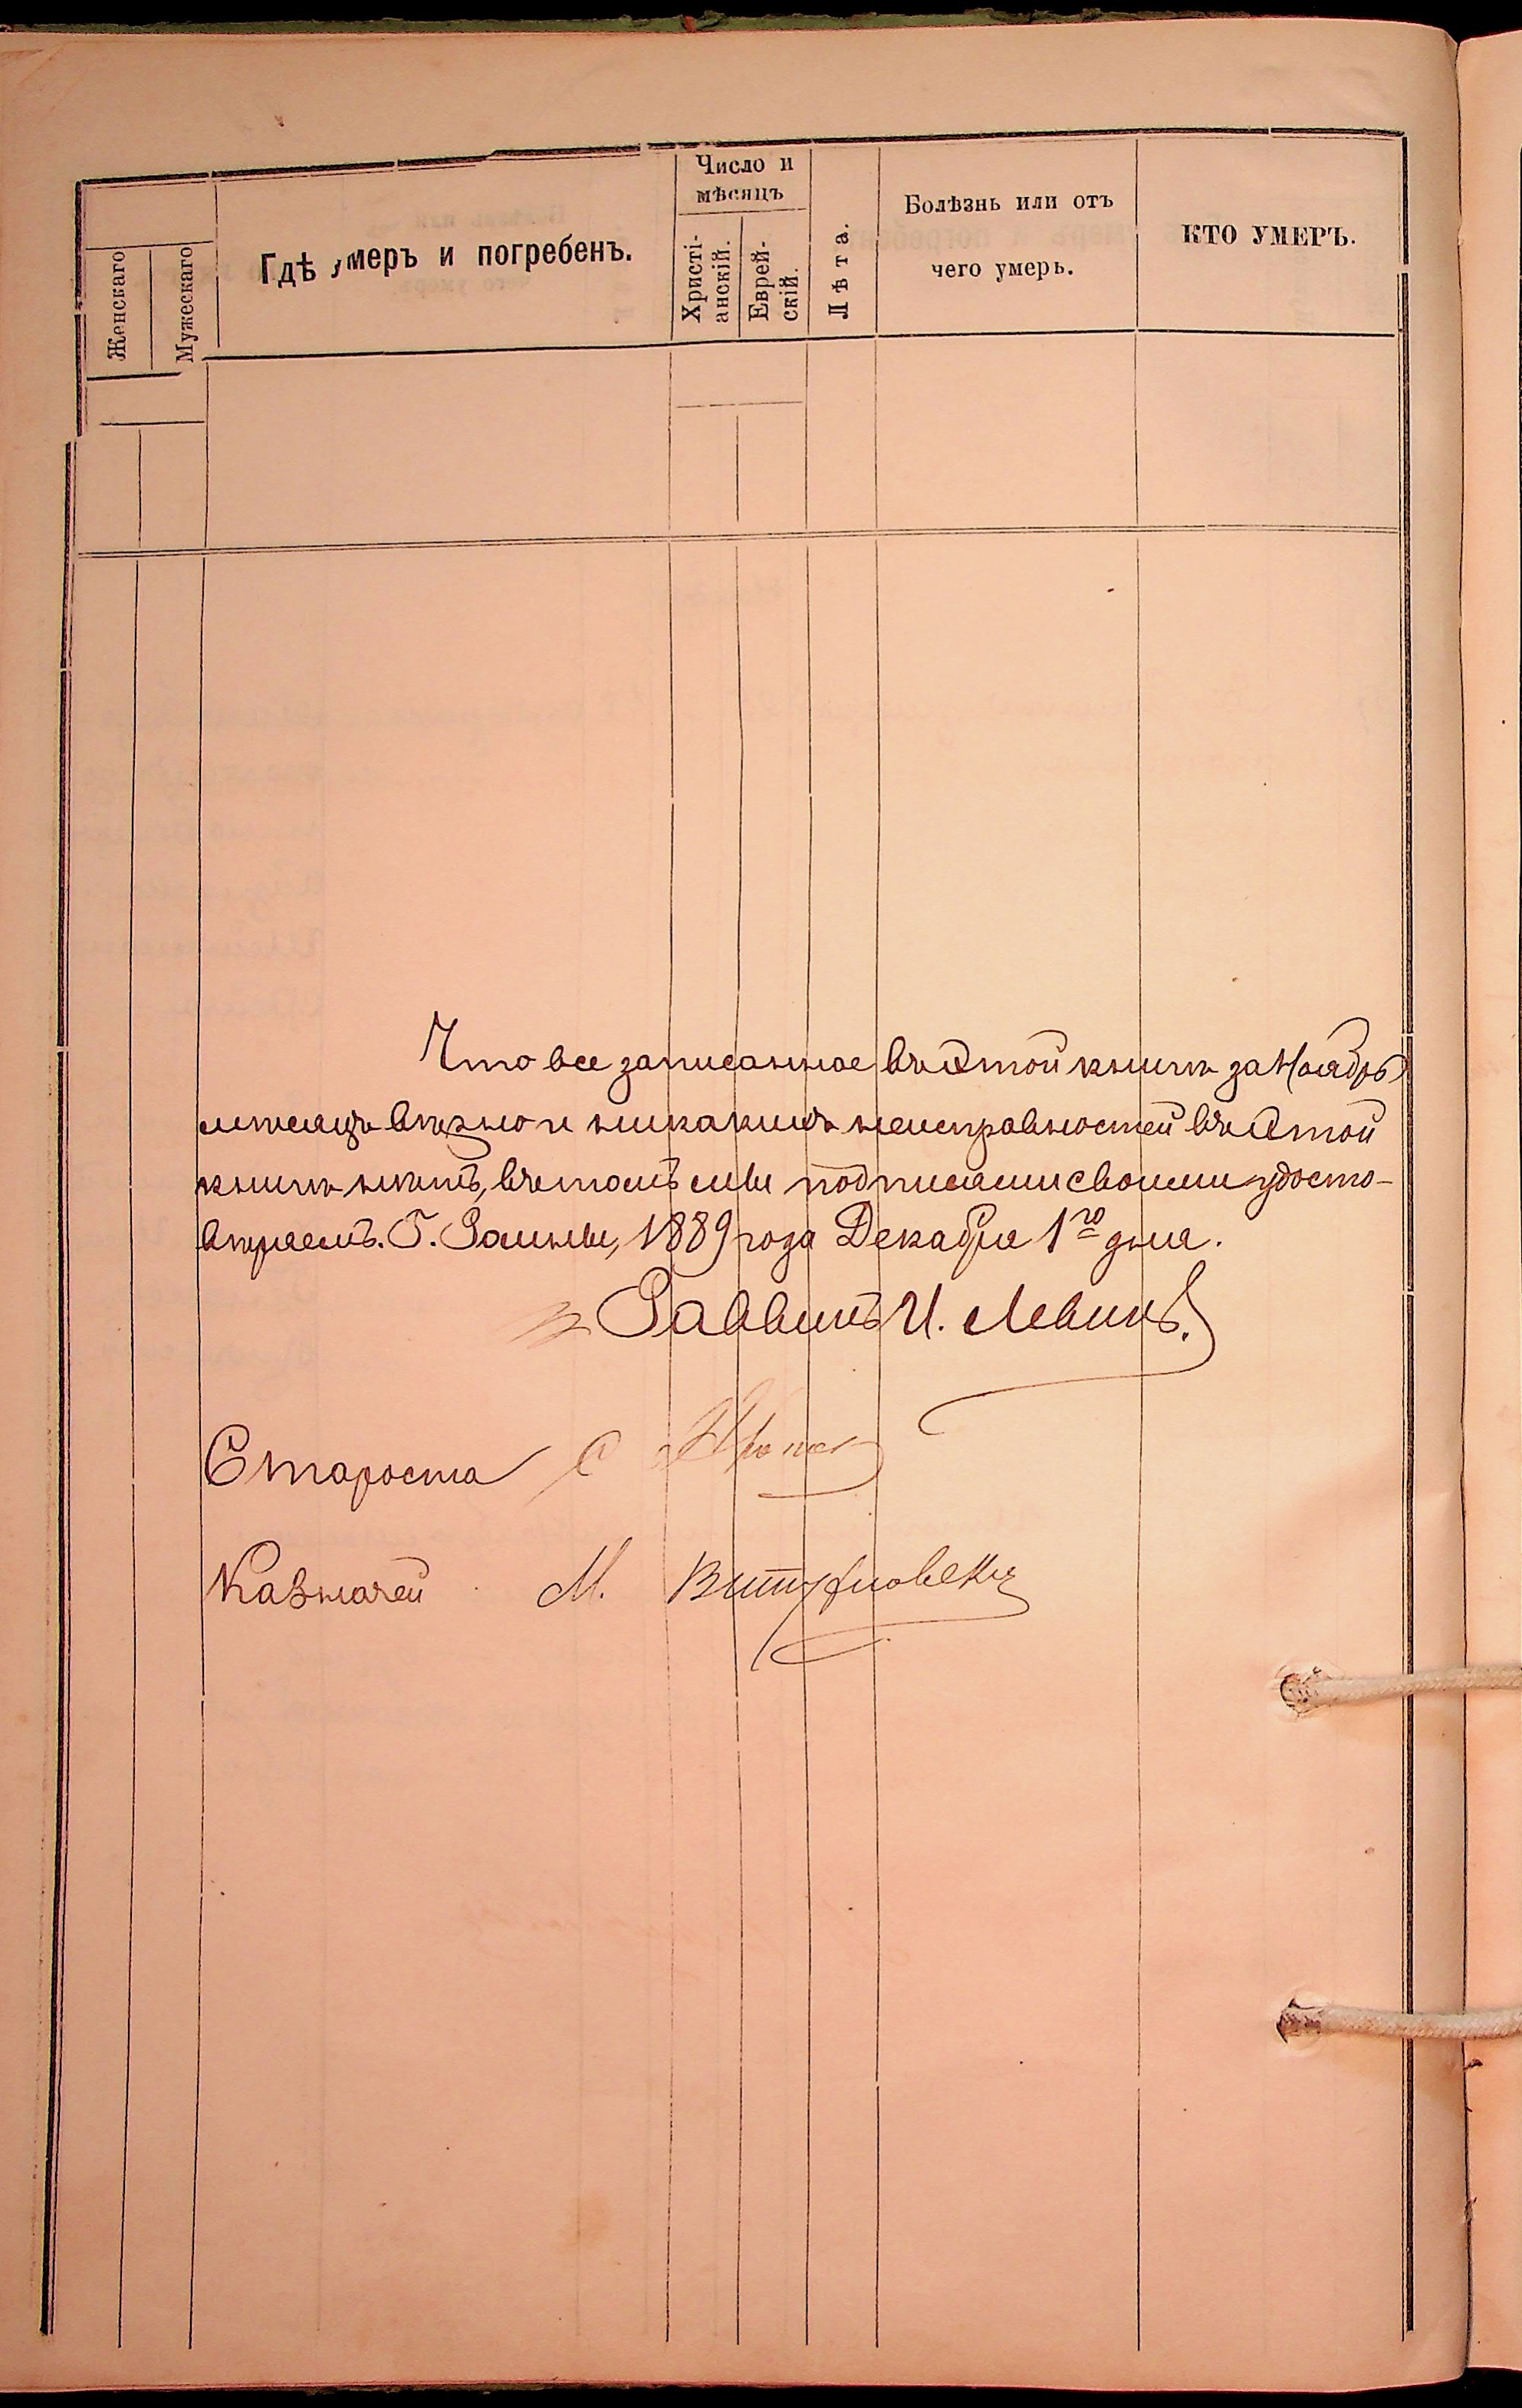 Число и
мѣсяцъ
Женскаго
Мужескаго
Гдѣ умеръ и погребенъ.
Христі-
анскій.
Еврей-
скій.
Лѣта.
Болѣзнь или отъ
чего умеръ.
КТО УМЕРЪ.
Что все записанное въ этой книгѣ за Ноябрь
мѣсяцъ вѣрно и никакихъ неисправностей въ этой
книгѣ нѣтъ, въ томъ мы подписами своими удосто-
вѣряемъ. Г. Ромны, 1889 года Декабря 1го дня.
Раввинъ И. Левинъ.
Староста С
Казначей М.